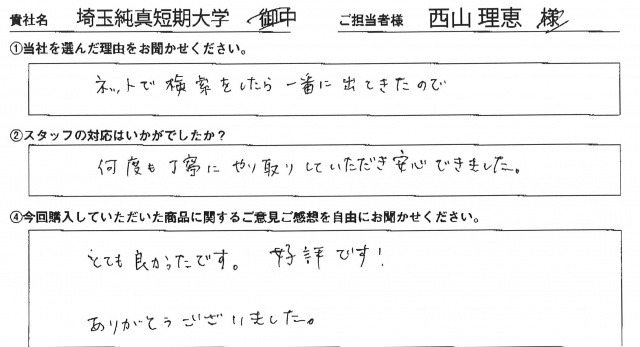 貴社名 埼玉純真短期大学 御中 ご担当者様 西山 理恵 様
①当社を選んだ理由をお聞かせください。
ネットで検索をしたら一番に出てきたので
②スタッフの対応はいかがでしたか？
何度も丁寧にやり取りしていただき安心できました。
④今回購入していただいた商品に関するご意見ご感想を自由にお聞かせください。
とても良かったです。 好評です！
ありがとうございました。